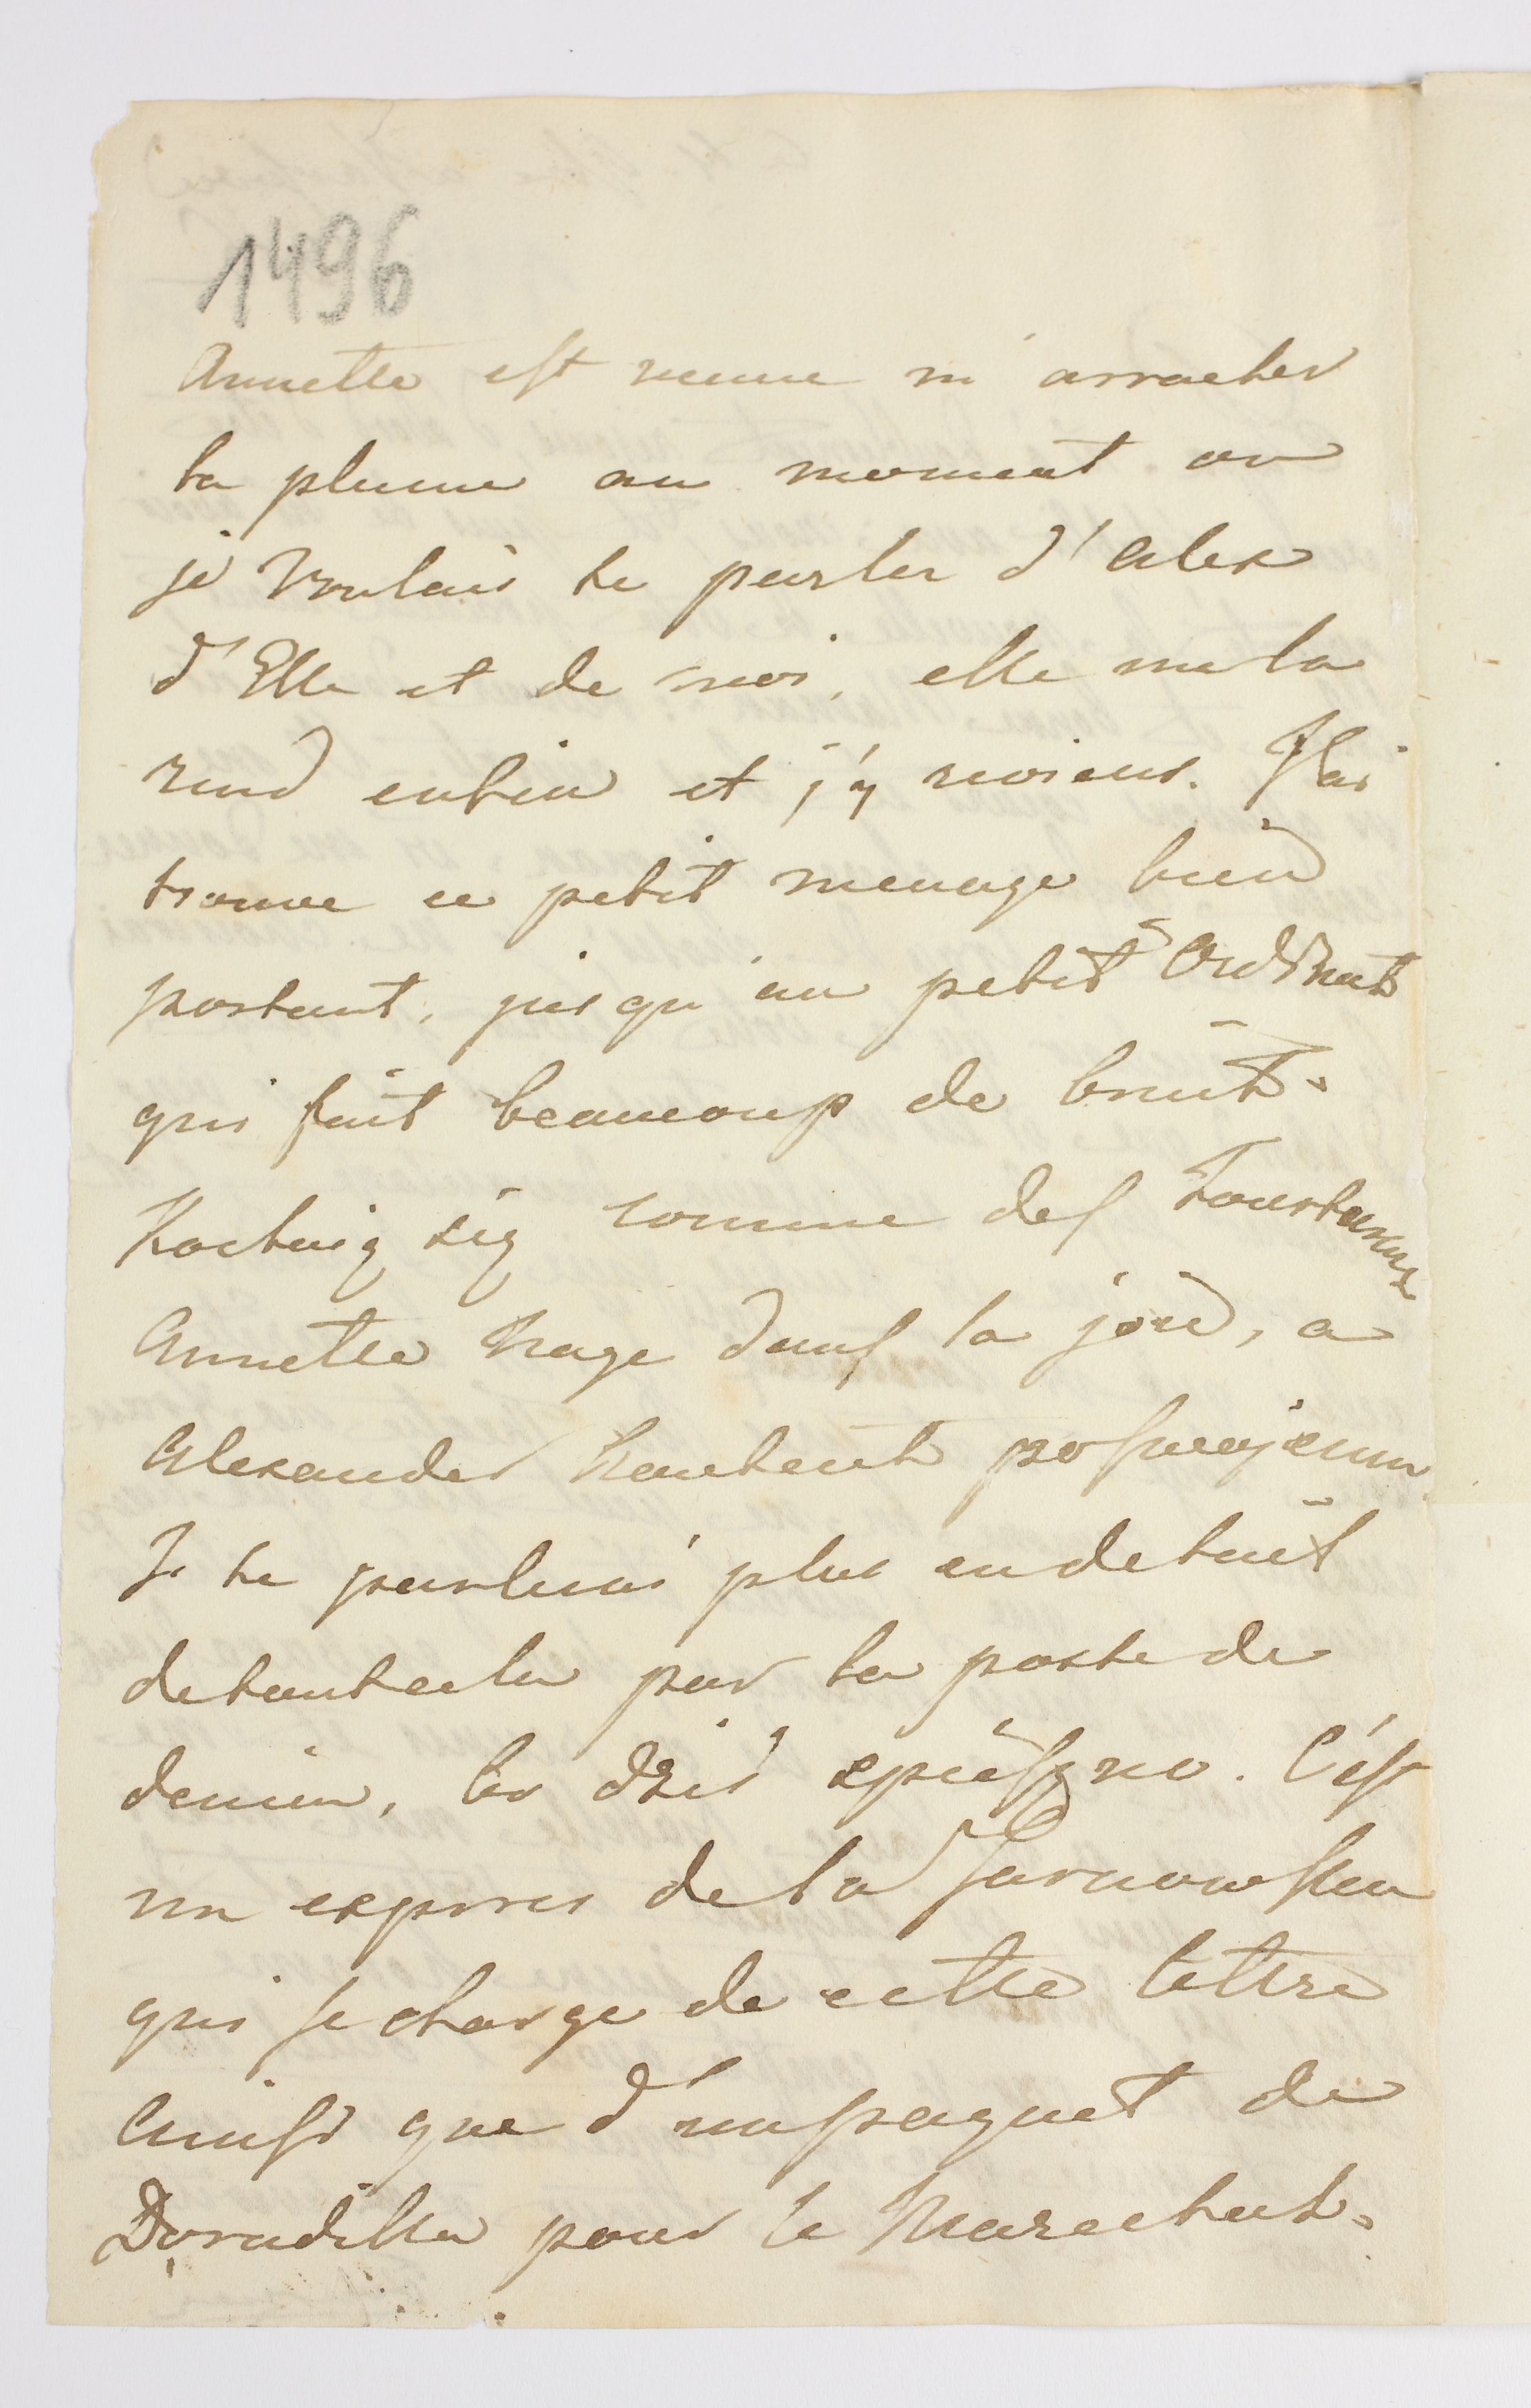 1496
Annette est venue m'arracher
la plume au moment ou
je voulais te parler d'Alex
d'Elle et de moi, elle me la
rend enfin et j'y reviens. J'ai
trouve ce petit menage bien
portant, jusqu'au petit Ordinat
qui fait beaucoup de bruit.
Kochaią się comme des
Annette nage dans la joie, a
Alexander
Je te parlerai plus en detail
de tout cela par la poste de
demain, bo dziś spieszno. C'est
un expres de la Tarnowska
qui se charge de cette lettre
ainsi que d'un paquet de
Doradilla pour le Marechal.